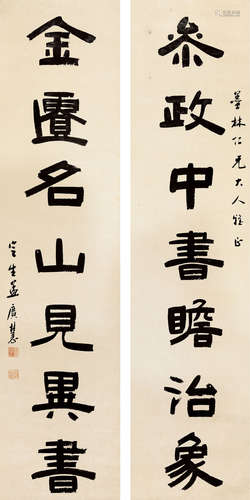 叅政中書瞻治象
墨林仁兄大人雅正
金匱名山見異書
定生孟廣慧